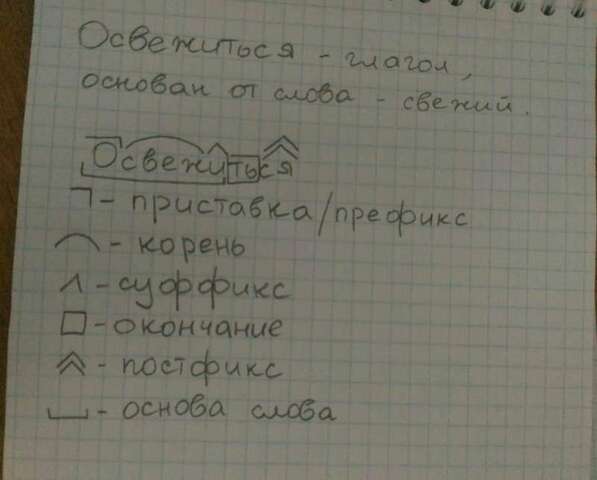 Освежиться - глагол,
основан от слова - свежий.
Освежиться
¬ - приставка/префикс
⌒ - корень
^ - суффикс
□ - окончание
- постфикс
- основа слова